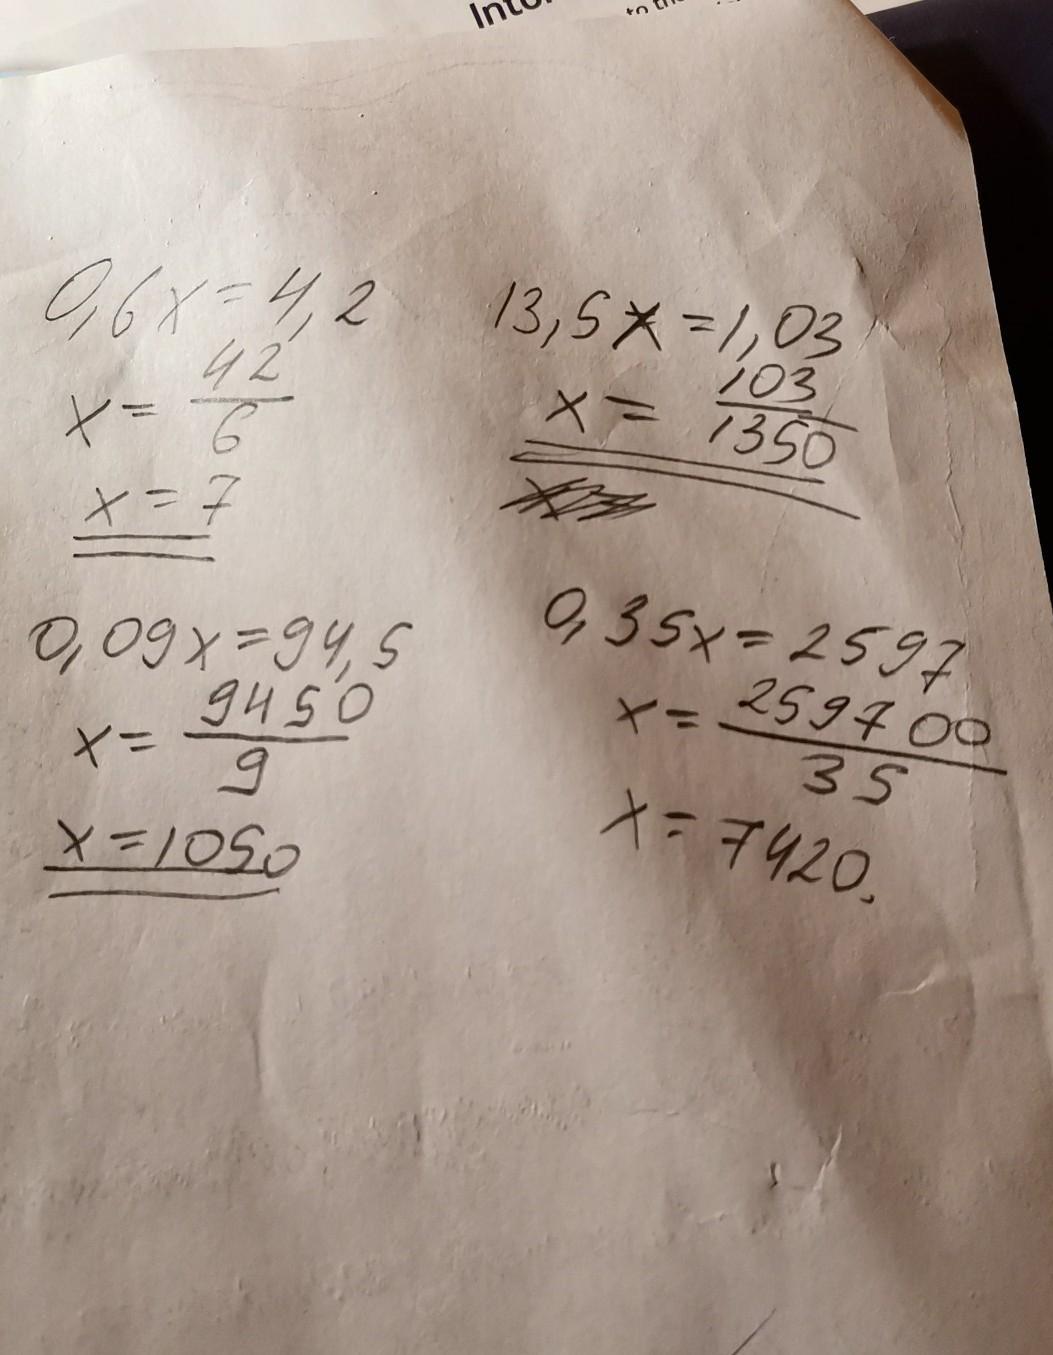 to the
0,6x=4,2
x= 42/6
x=7
13,5x=1,03
x= 103/1350
0,09x=94,5
x= 9450/9
x=1050
0,35x=2597
x= 259700/35
x=7420.